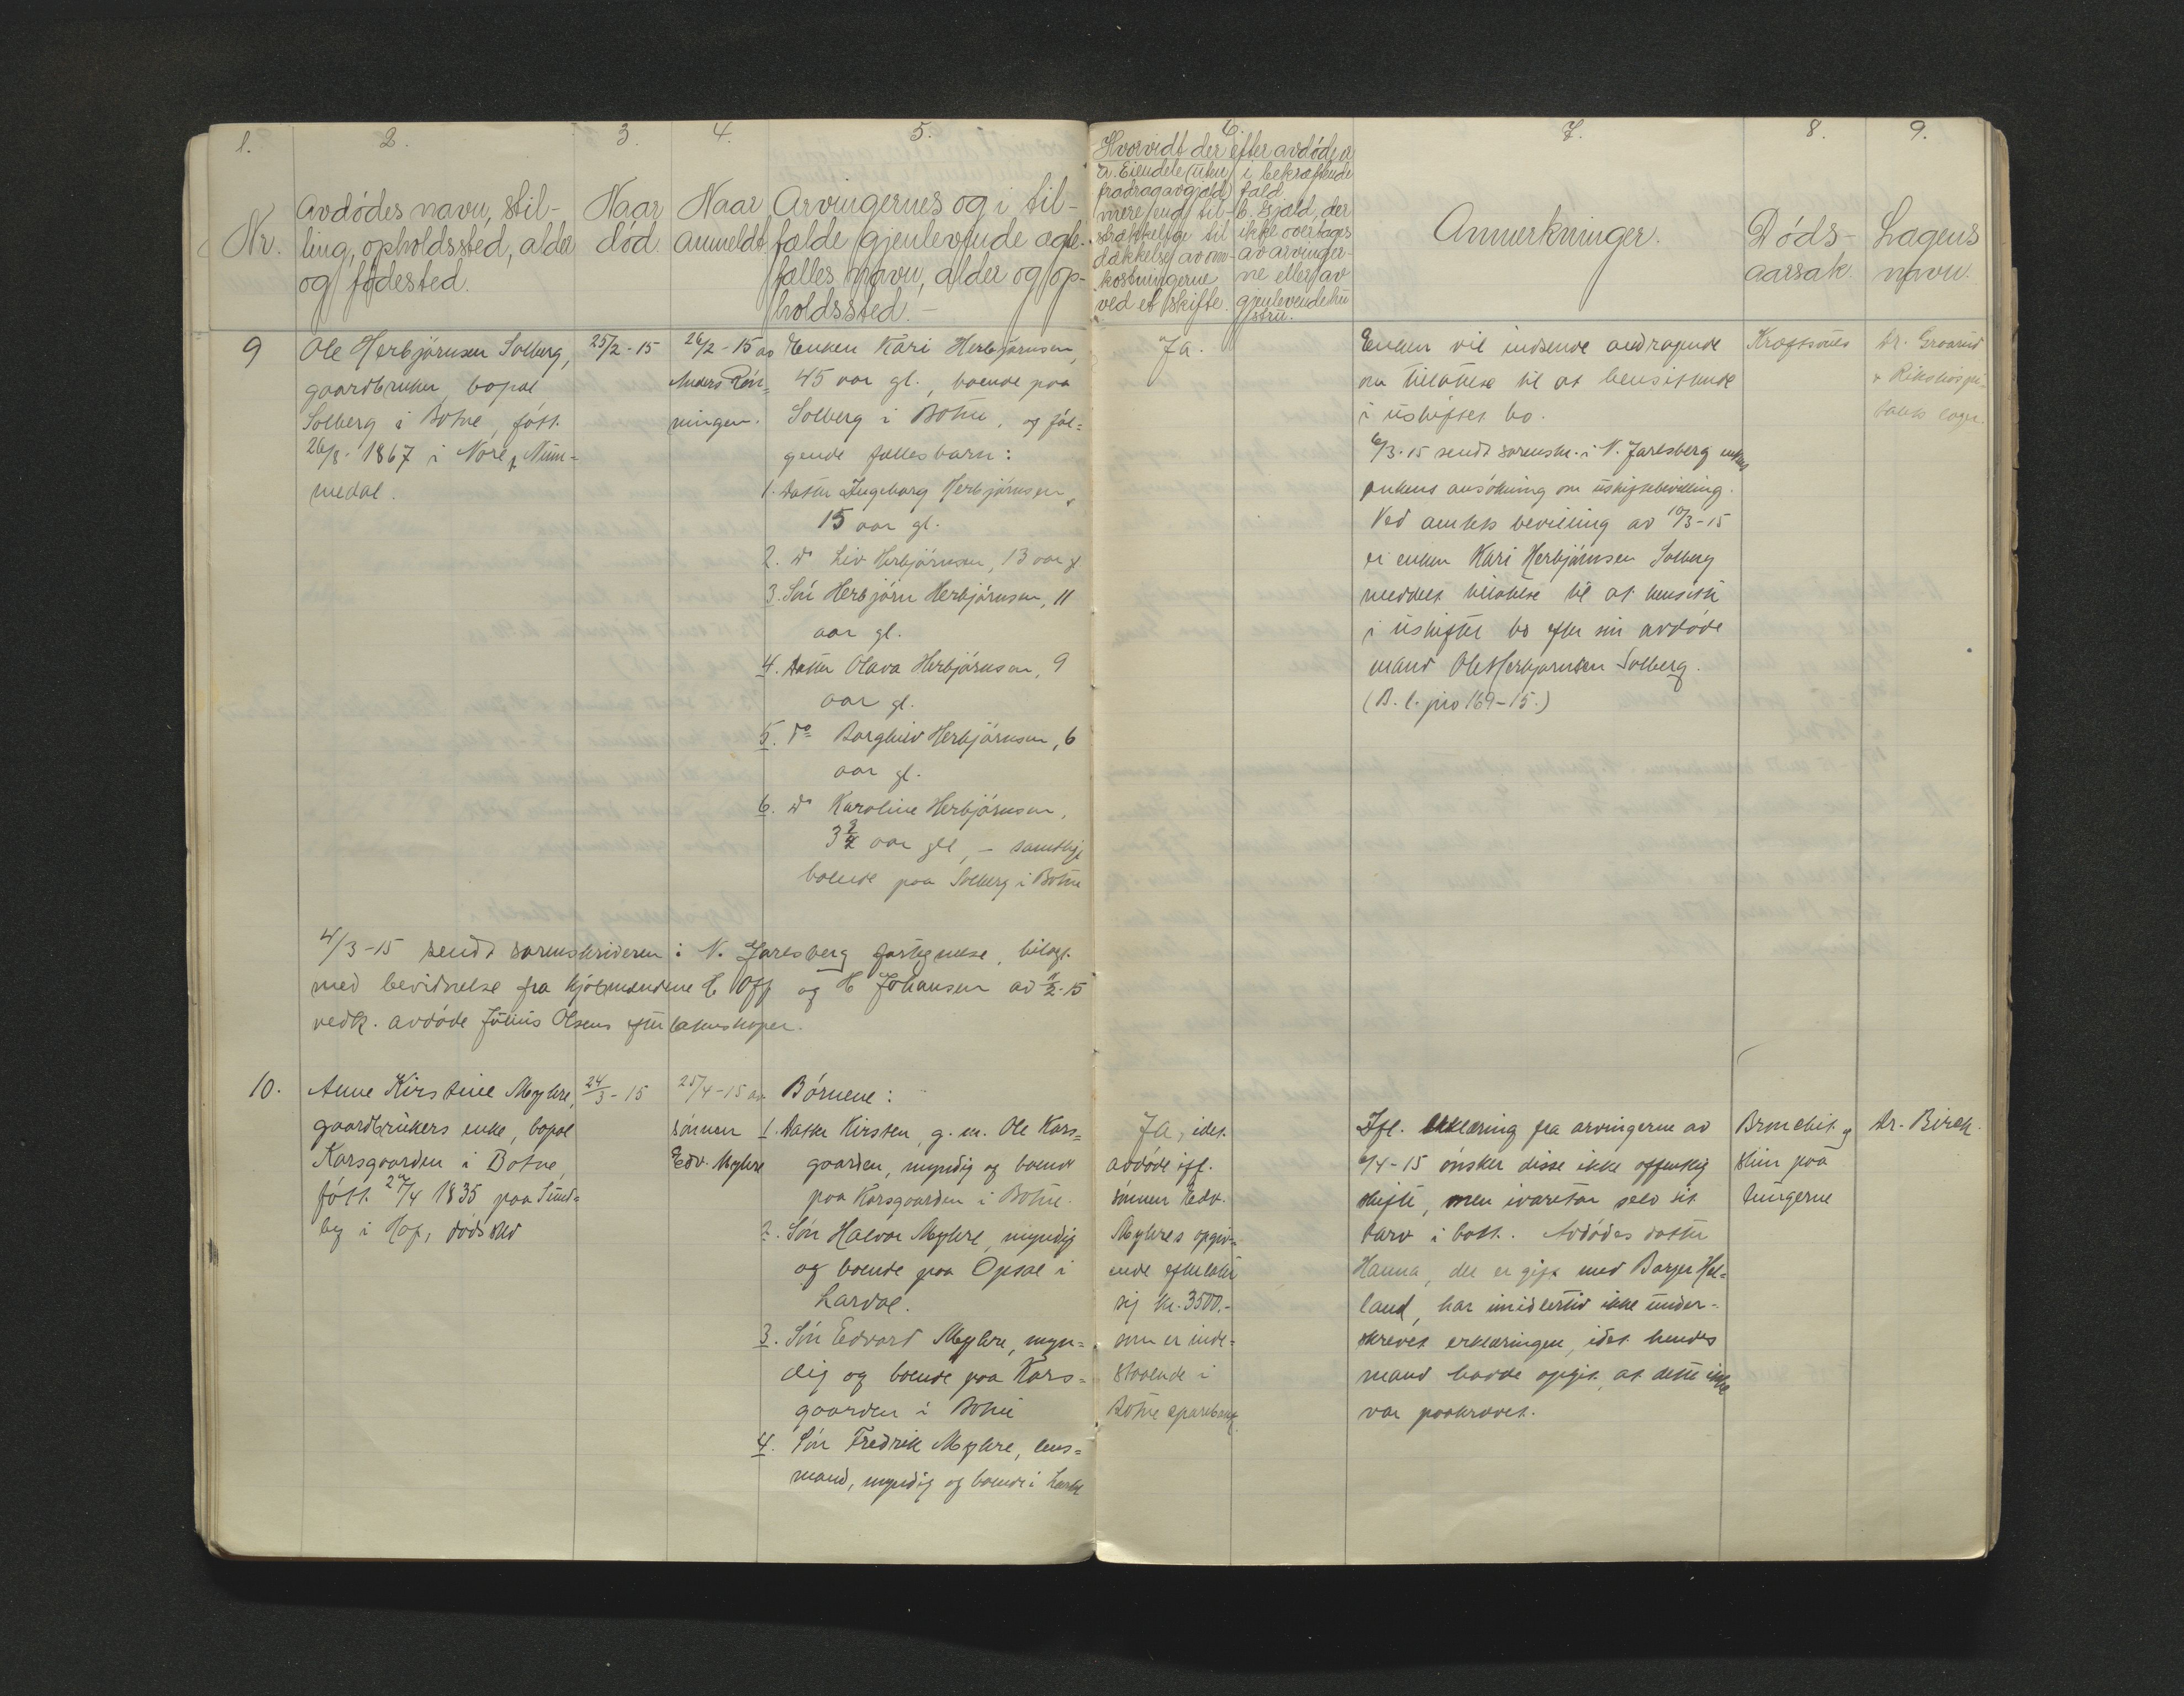 1.
2.
3.
4.
5.
6.
7.
8.
9.
Nr.
Avdødes navn, stil-
ling, opholdssted, alder
og fødested.
Naar
død.
Naar
anmeldt
Arvingernes og i til-
fælde gjenlevende ægte-
fælles navn, alder og op-
holdssted.-
Hvorvidt der efter avdøde er
a. Eiendele (uten
fradrag av gjæld)
mere end til-
strækkelige til
dækkelse av om-
kostningerne
ved et skifte.
i bekræftende
fald
b. Gjæld, der
ikke overtages
av arvinger-
ne eller av
gjenlevende hu-
stru.
Anmerkninger.
Døds-
aarsak.
Lægens
navn.
9
Ole Herbjørnsen Solberg,
gaardbruker, bopæl
Solberg i Botne, født
26/8-1867 i Nore, Num-
medal.
25/2-15
26/2-15 av
Anders Røn-
ningen.
Enken Kari Herbjørnsen,
45 aar gl., boende paa
Solberg i Botne, og føl-
gende fellesbarn:
1. Datter Ingeborg Herbjørnsen,
15 aar gl.
2. do Liv Herbjørnsen, 13 aar gl
3. Søn Herbjørn Herbjørnsen, 11
aar gl.
4. Datter Olava Herbjørnsen, 9
aar gl.
5. do Borghild Herbjørnsen, 6
aar gl.
6. do Karoline Herbjørnsen,
aar gl, - samtlige
boende paa Solberg i Botne
Ja.
Enken vil indsende andragende
om tillatelse til at hensidde
i uskiftet bo.
6/3-15 sendt sorenskr. i N. Jarlsberg
enkens ansøkning om uskiftebevilling.
Ved amtets bevilling av 10/3-15
er enken Kari Herbjørnsen Solberg
meddelt tillatelse til at hensitte
i uskiftet bo efter sin avdøde
mand Ole Herbjørnsen Solberg.
(B. l. pro 169-15.)
Kræftsaues
Dr. Graarud
Rikshospi-
talets læger.
4/3-15 sendt sorenskriveren i N. Jarlsberg fortegnelse, bilagt
med bevidnelse fra kjøbmændene H. Off og H Johansen av -15
vedk. avdøde Julius Olsens efterlatenskaper.
10.
Anne Kirstine Myhre,
gaardbrukers enke, bopæl
Korsgaarden i Botne,
født 2/4 1835 paa Sund-
by i Hof, dødssted
24/3-15
25/4-15 av
sønnen
Edv. Myhre
Børnene:
1. Datter Kirsten, g. m. Ole Kors-
gaarden, myndig og boende
paa Korsgaarden i Botne.
2. Søn Halvor Myhre, myndig
og boende paa Opsal i
Lardal.
3. Søn Edvard Myhre, myn-
dig og boende paa Kors-
gaarden i Botne
4. Søn Fredrik Myhre, lens-
mand, myndig og boende i
Ja, idet
avdøde ifl.
sønnen Edv.
Myhres opgiv-
ende efterlater
sig kr. 3500,-
som er inde-
staaende i
Botne sparebank
Ifl. erklæring fra arvingerne av
/4-15 ønsker disse ikke offentlig
skifte, men ivaretar selv sit
tarv i boet. Avdødes datter
Hanna, der er gift med Borger Hol-
land, har imidlertid ikke under-
skrevet erklæringen, idet hendes
mand hadde opgit, at dette ikke
var paakrævet.
Bronchit og
slim paa
lungerne
Dr. Birch.